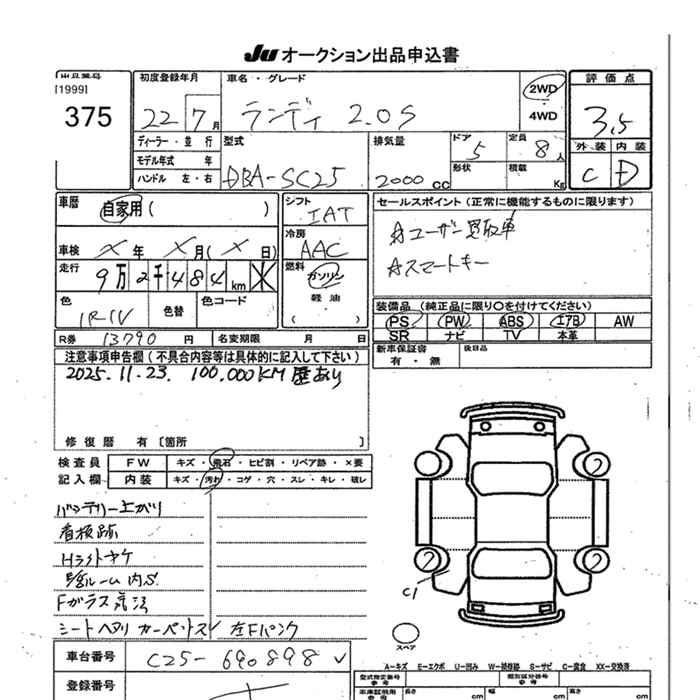 JU オークション出品申込書
出品番号
[1999]
375
初度登録年月
22 7 月
車名・グレード
ランディ 2.0S
2WD
4WD
評価点
3.5
外装 内装
C D
ディーラー・並行
モデル年式 年
ハンドル 左・右
型式
DBA-SC25
排気量
2000 cc
ドア
5
形状
定員
8 人
積載
Kg
車歴
自家用 ( )
シフト
IAT
冷房
AAC
燃料
ガソリン
軽油
( )
車検
年 月 ( 日)
走行
9万 2千 4 8 4 km
色
色替
色コード
セールスポイント (正常に機能するものに限ります)
☆ユーザー買取車
☆スマートキー
装備品 (純正品に限り○を付けてください)
PS PW ABS エアB AW
SR ナビ TV 本革
新車保証書
有・無
後日品
R券 13790 円
名変期限 月 日
注意事項申告欄 (不具合内容等は具体的に記入して下さい)
2025.11.23. 100,000KM 歴あり
修復歴 有 [箇所 ]
検査員
記入欄
FW キズ・飛石・ヒビ割・リペア跡・×要
内装 キズ・汚れ・コゲ・穴・スレ・キレ・破レ
バッテリー上がり
看板跡
Hライトヤケ
Fガラス
シートヘタリ カーペットス 左Fパンク
車台番号
C25-690898
登録番号
C1
スペア
A-キズ E-エクボ U-凹み W-補修跡 S-サビ C-腐食 XX-交換済
型式指定番号
類別区分番号
長さ cm
幅 cm
高さ cm